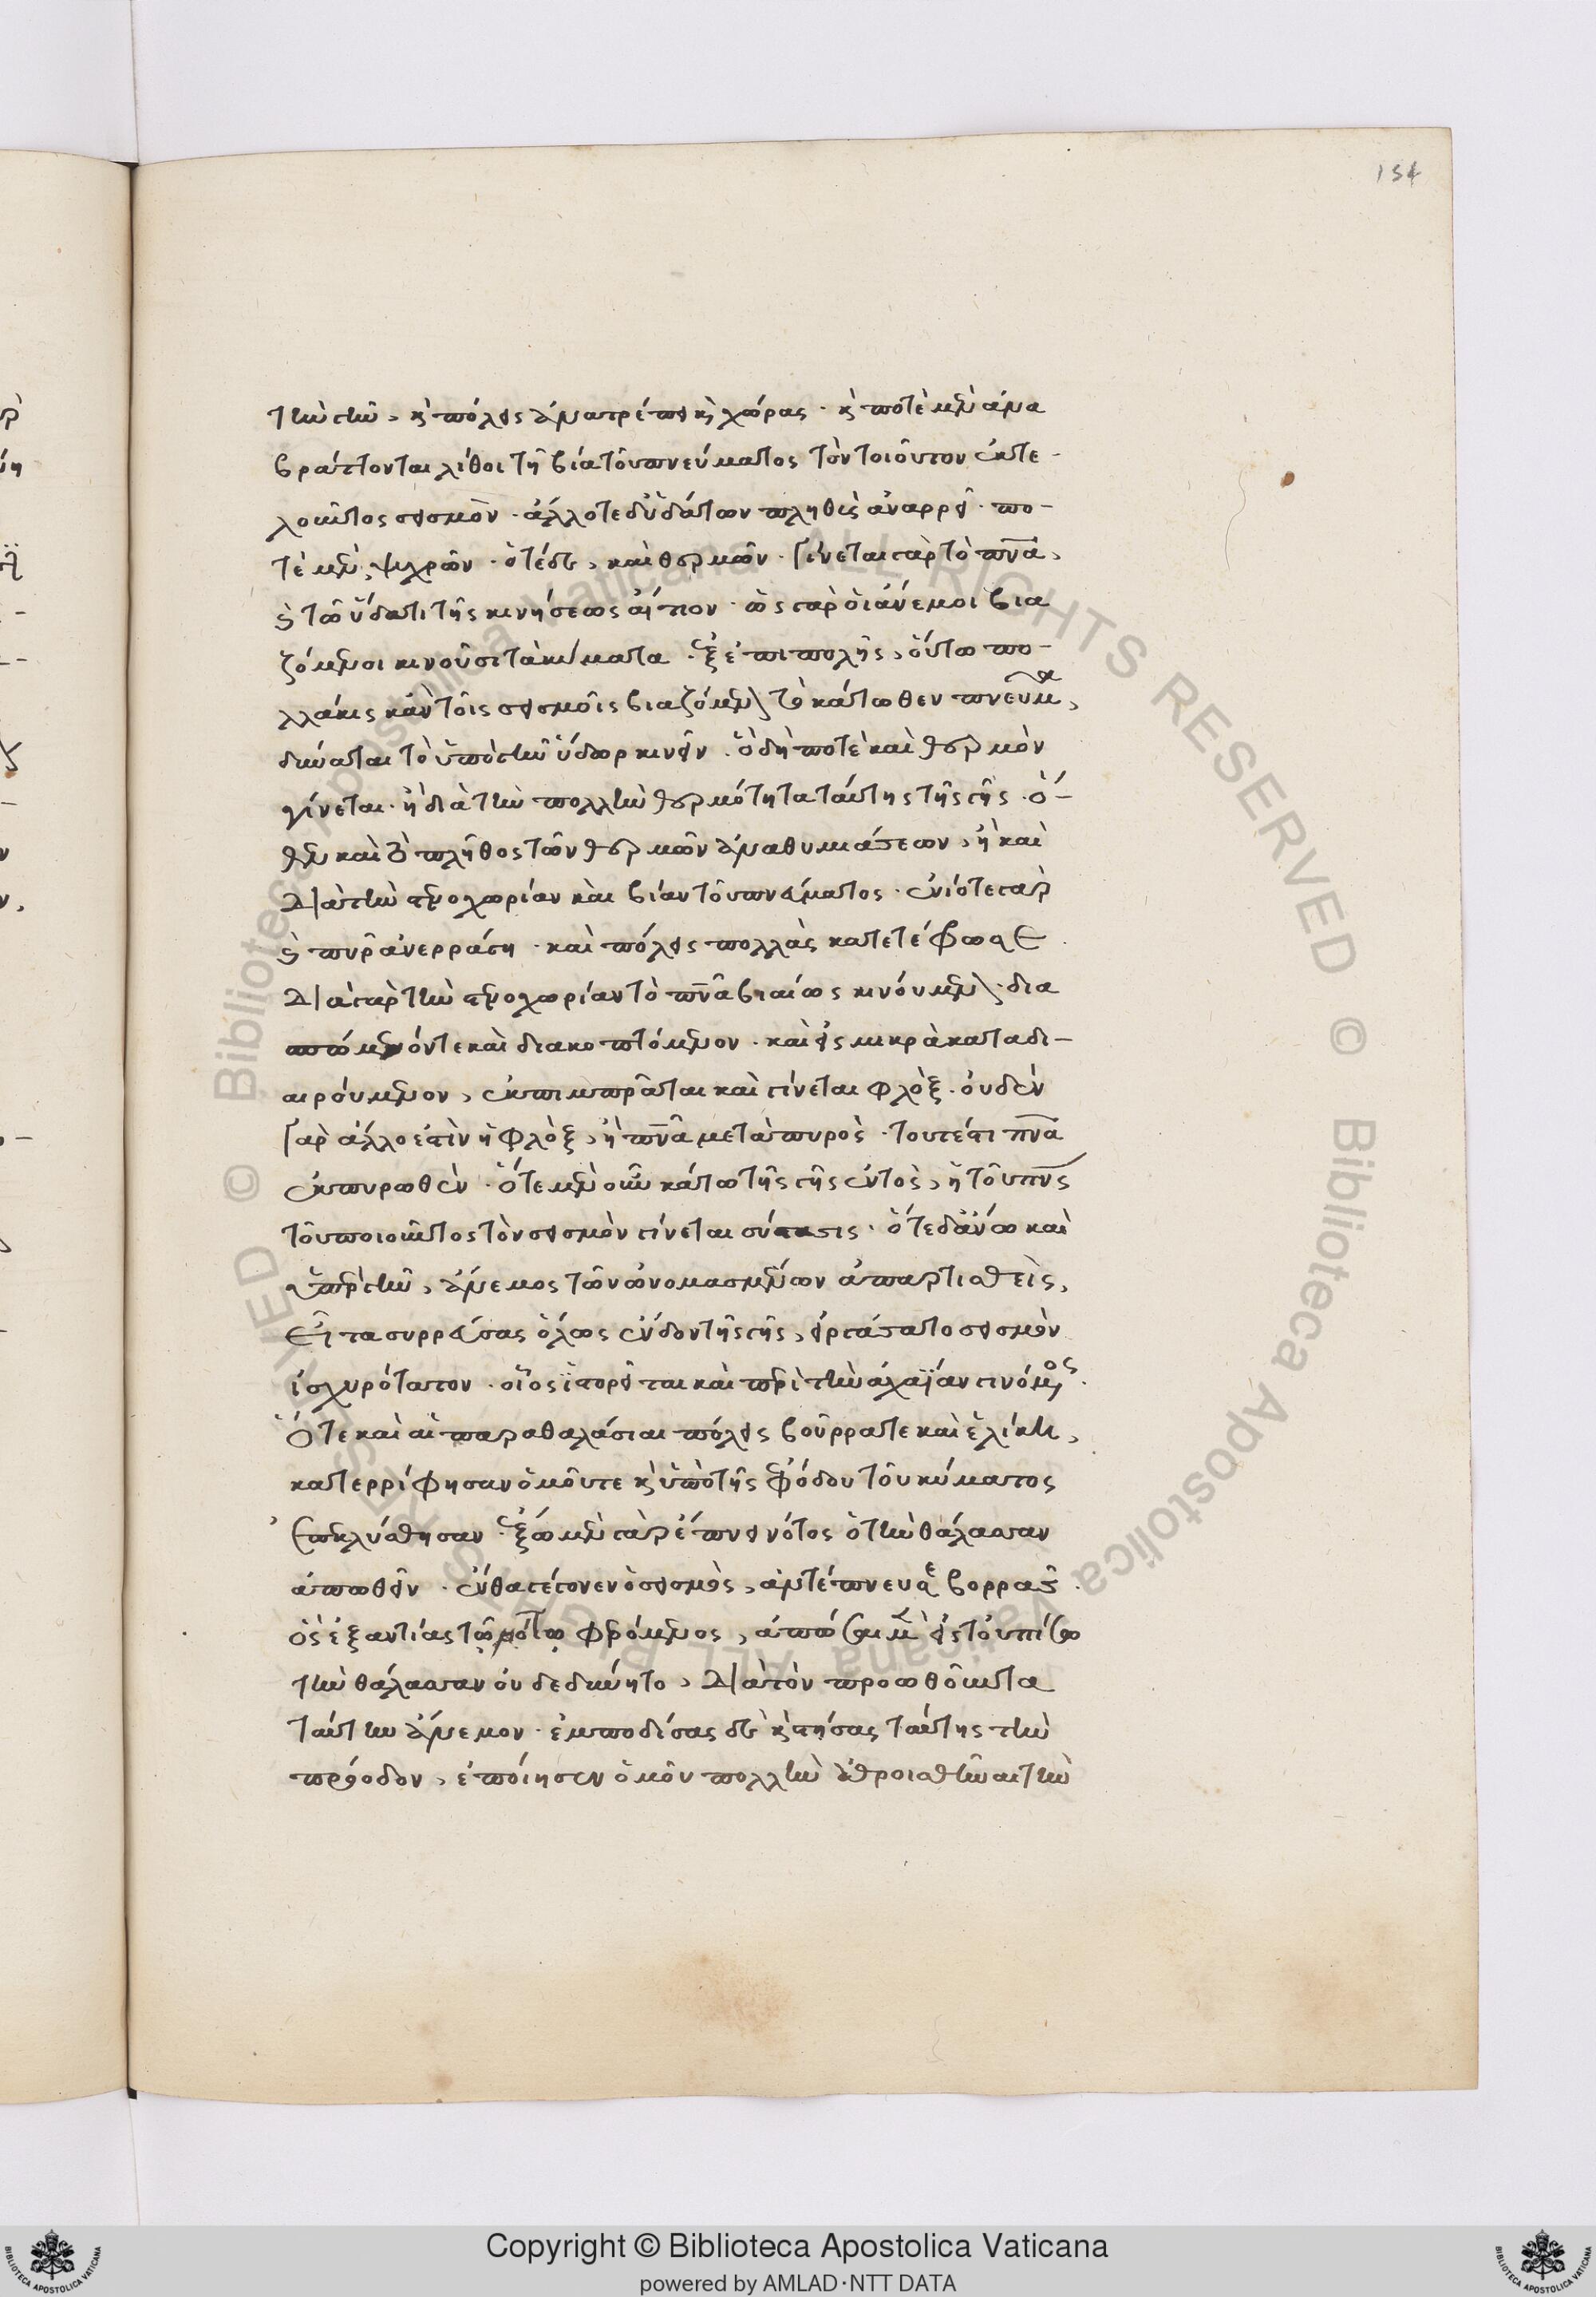 154
τὴν γῆν, καὶ πόλεις ἀνατρέπει καὶ χώρας · καὶ ποτὲ μὲν ἅμα
βράττονται λίθοι τῆ βία τοῦ πνεύματος τὸν τοιοῦτον ἐκτε-
λοῦντος σεισμὸν · ἄλλοτε δ' ὑδάτων πλῆθος ἀναρρεῖ · πο-
τὲ μὲν, ψυχρῶν · ὁτέδε, καὶ θερμῶν · γίνεται γὰρ τὸ πνα,
καὶ τῶ ὕδατι τῆς κινήσεως αἴτιον · ὡς γὰρ οἱ ἄνεμοι βια
ζόμενοι κινοῦσι τὰ κύματα ἐξ ἐπιπολῆς, οὕτω πο-
λλάκις κἀν τοῖς σεισμοῖς βιαζόμενον τὸ κάτωθεν πνεῦμα,
δύναται τὸ ὑπὸ γῆν ὕδωρ κινεῖν · ὃ δή ποτε καὶ θερμὸν
γίνεται · ἢ διὰ τὴν πολλὴν θερμότητα ταύτης τῆς γῆς · ὅ-
θεν καὶ τὸ πλῆθος τῶν θερμῶν ἀναθυμιάσεων, ἢ καὶ
διὰ τὴν στενοχωρίαν καὶ βίαν τοῦ πνεύματος · ἐνίοτε γὰρ
καὶ πῦρ ἀνερράγη · καὶ πόλεις πολλὰς κατετέφρωσε
διὰ γὰρ τὴν στενοχωρίαν τὸ πνα βιαίως κινούμενον · δια
όν τε καὶ διακοπτόμενον · καὶ εἰς μικρὰ καταδι-
αιρούμενον, ἐκπιμπρᾶται καὶ γίνεται φλὸξ · οὐδὲν
γὰρ ἄλλο ἐστὶν ἡ φλὸξ, ἢ πνα μετὰ πυρὸς · τουτέστι πνα
ἐκπυρωθὲν · ὅτε μὲν οὖν κάτω τῆς γῆς ἐντὸς, ἡ τοῦ πνς
τοῦ ποιοῦντος τὸν σεισμὸν γίνεται σύστασις · ὅτε δ' ἄνω καὶ
ὑπὲρ γῆν, ἄνεμος τῶν ὠνομασμένων ἀπαρτισθεὶς,
εἶτα συρρεύσας ὅλως ἔνδον τῆς γῆς, εἰργάσατο σεισμὸν
ἰσχυρότατον · οἷος ἱστορεῖται καὶ περὶ τὴν ἀχαΐαν γινόμενος ·
ὅτε καὶ αἱ παραθαλάσιαι πόλεις βοῦρρα τε καὶ ἑλίκη,
κατερρίφησαν ὁμοῦ τε καὶ ὑπὸ τῆς ἐφόδου τοῦ κύματος
ἐπεκλύσθησαν · ἔξω μὲν γὰρ ἔπνει νότος ὁ τὴν θάλασσαν
ἀπωθεῖν · ἔνθα γέγονεν ὁ σεισμὸς, ἀντέπνευσε βορρας ·
ὃς ἐξ ἐναντίας τῶ νότω φερόμενος, ἀπώσαι μὲν εἰς τοὐπίσω
τὴν θάλασσαν οὐ δεδύνητο, διὰ τὸν προωθοῦντα
ταύτην ἄνεμον · ἐμποδίσας δὲ καὶ στήσας ταύτης τὴν
πρόοδον, ἐποίησεν ὁμοῦ πολλὴν ἀθροισθῆναι τὴν
Copyright © Biblioteca Apostolica Vaticana
powered by AMLAD·NTT DATA